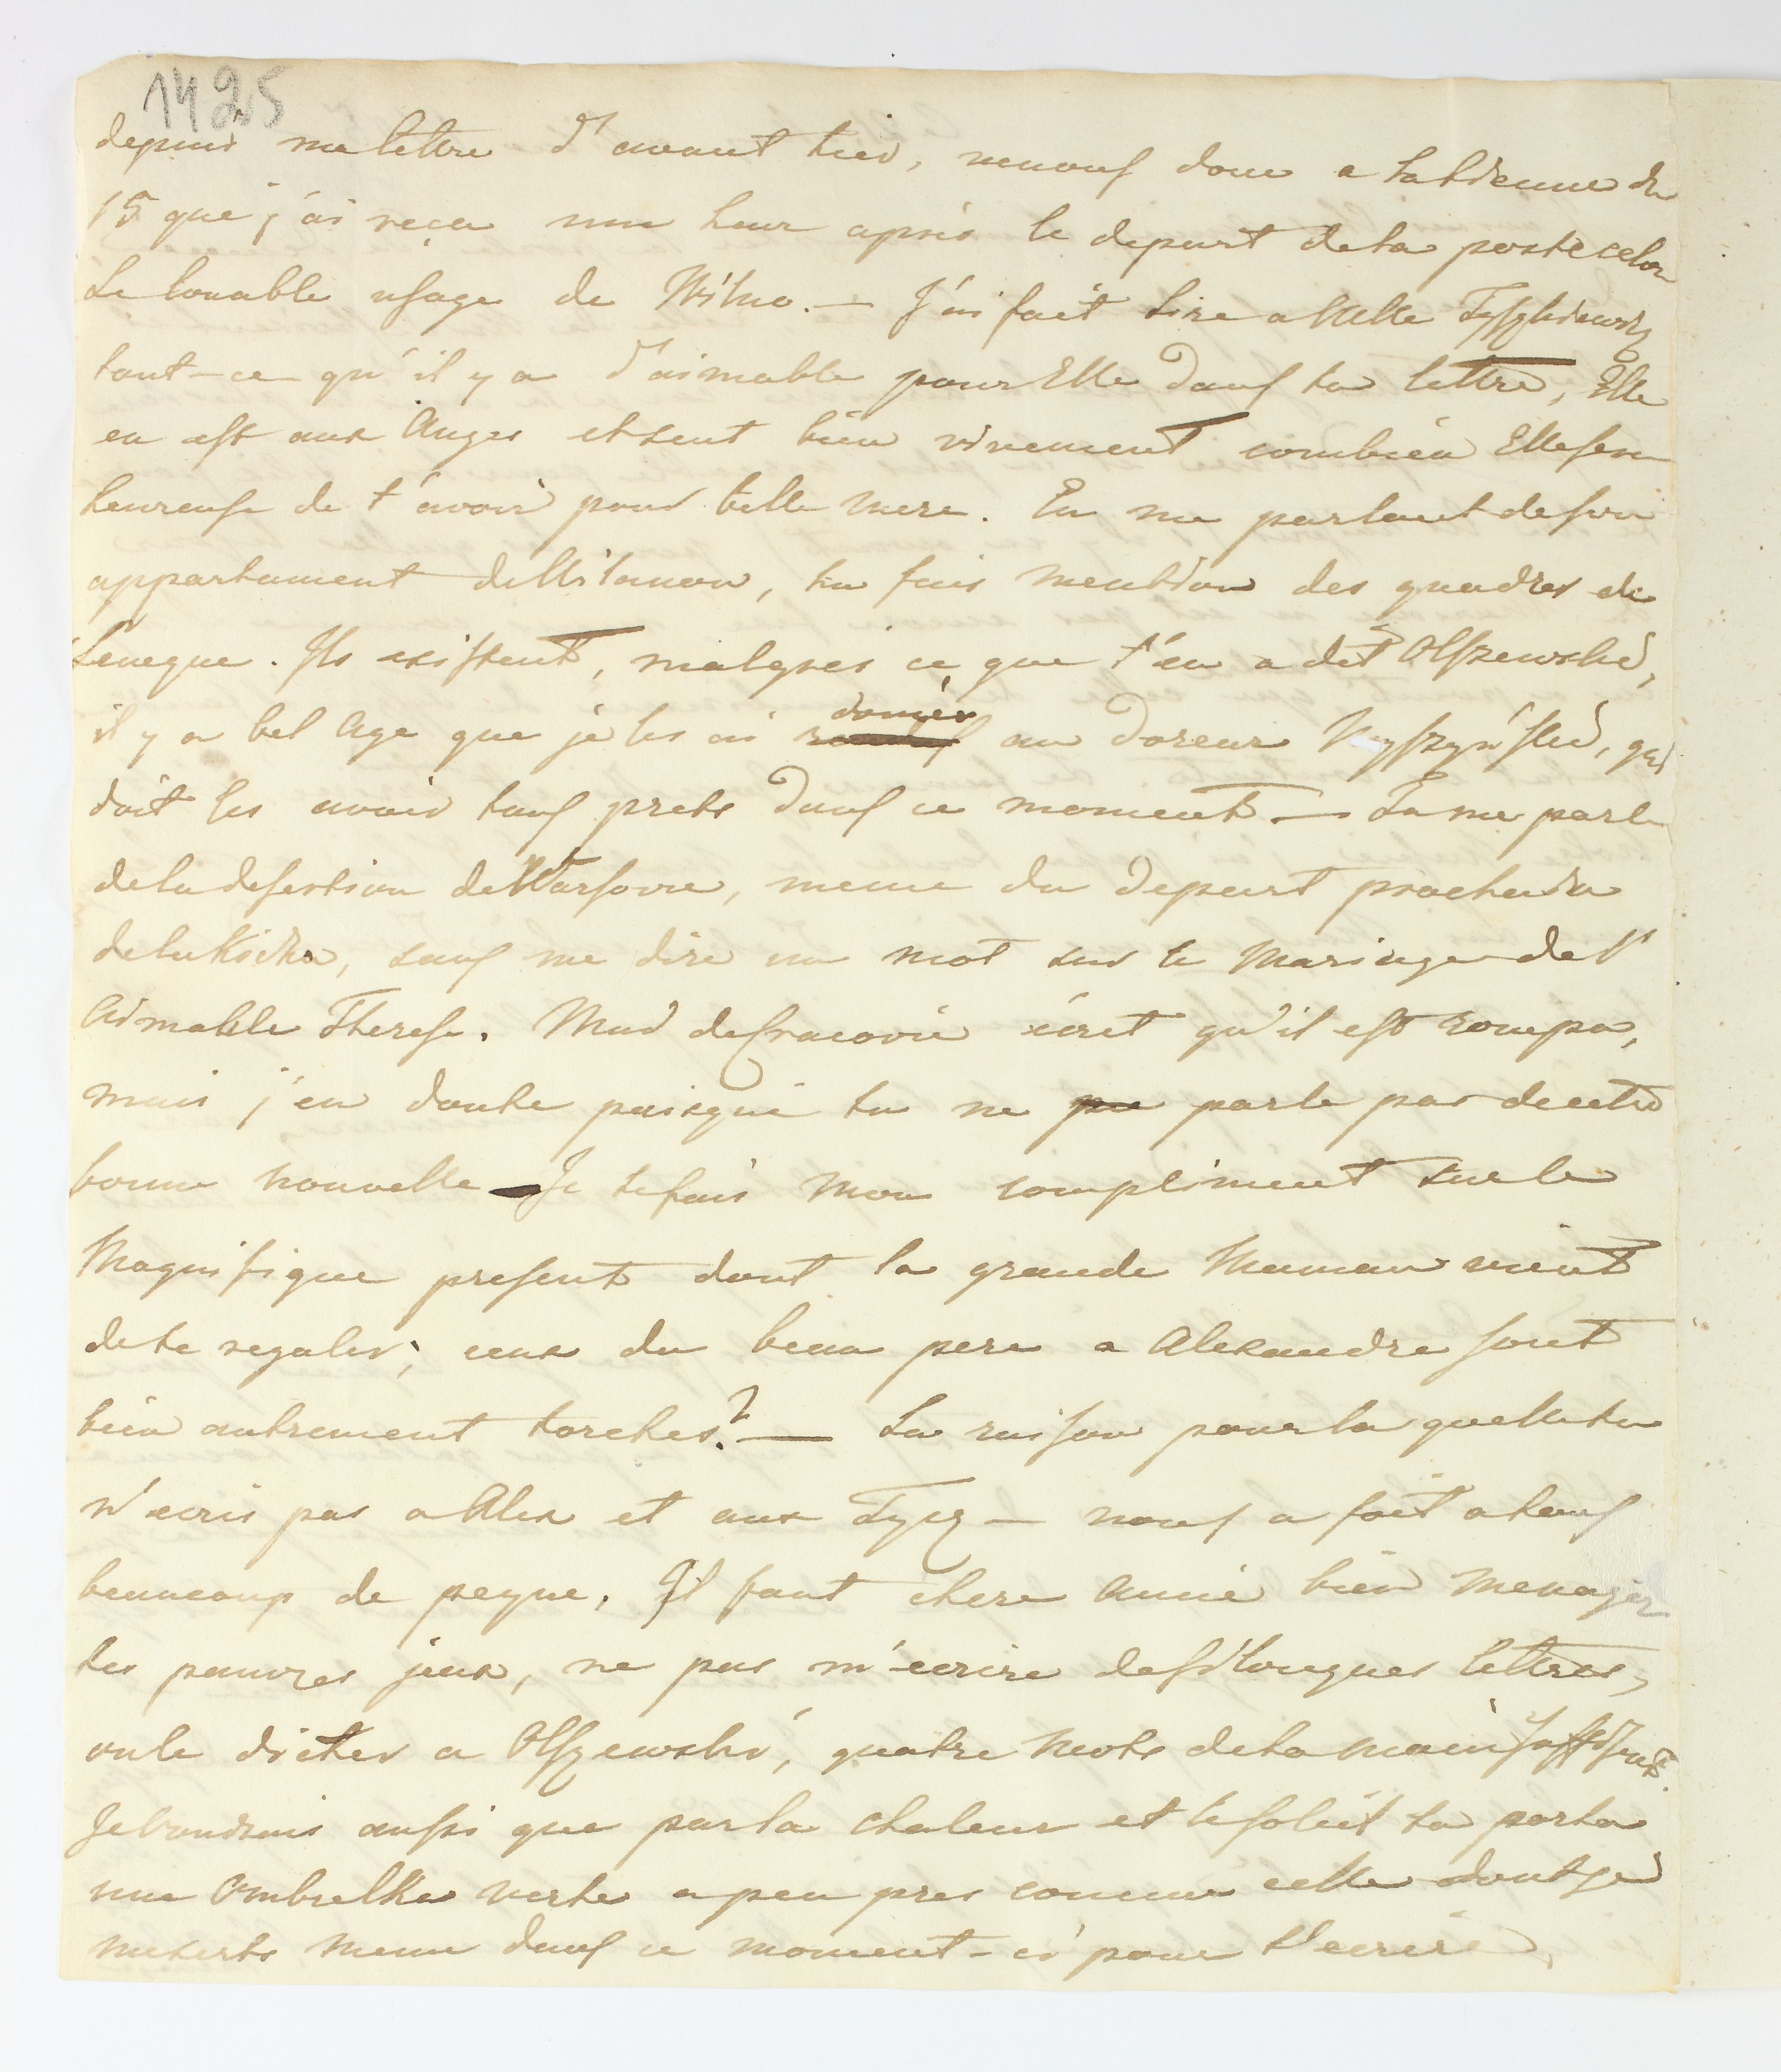 1425
depuis ma lettre d'avant hier, venons donc a la tienne du
15 que j'ai reçu une heur après le depart de la poste selon
Le louable usage de Wilno. — J'ai fait Lire a Mlle Tyszkiewicz
tout-ce qu'il y a d'aimable pour Elle dans ta lettre, Elle
en est aux Anges et sent bien vivement combien Elle sera
heureuse de t'avoir pour belle mere. En me parlant de son
appartament de Wilanow, tu fais mention des quadres de
Leveque. Ils existent, malgres ce que t'en a dit Olszewski,
il y a bel age que je les ai donnés au Doreur Wyszyński, qui
doit les avoir tous prets dans ce moment — Tu me parle
de la desertion de Warsovie, meme du Depart prochain
de la Kicka, sans me dire un mot sur le Mariage de l'
Aimable Therese. Mud de Cracovie écrit qu'il est rompu,
mais j'en doute puisque tu ne parle pas de cette
bonne nouvelle — Je te fais Mon compliment sur le
Magnifique present dont la grande Maman vient
de te regaler; ceux du beau pere a Alexandre sont
bien autrement torches? — La raison pour la quelle tu
n'ecris pas a Alex et aux Tysz — nous a fait a tous
beaucoup de peyne. Il faut chere Amie bien Menager
tes pauvres jeux, ne pas m'ecrire de si longues lettres,
ou le dicter a Olszewski, quatre mots de ta main suffisent.
Je voudrais aussi que par la chaleur et le soleil tu porta
une Ombrelka verte a peu pres comme celle dont je
me serts meme dans ce moment-ci pour t'ecrire,